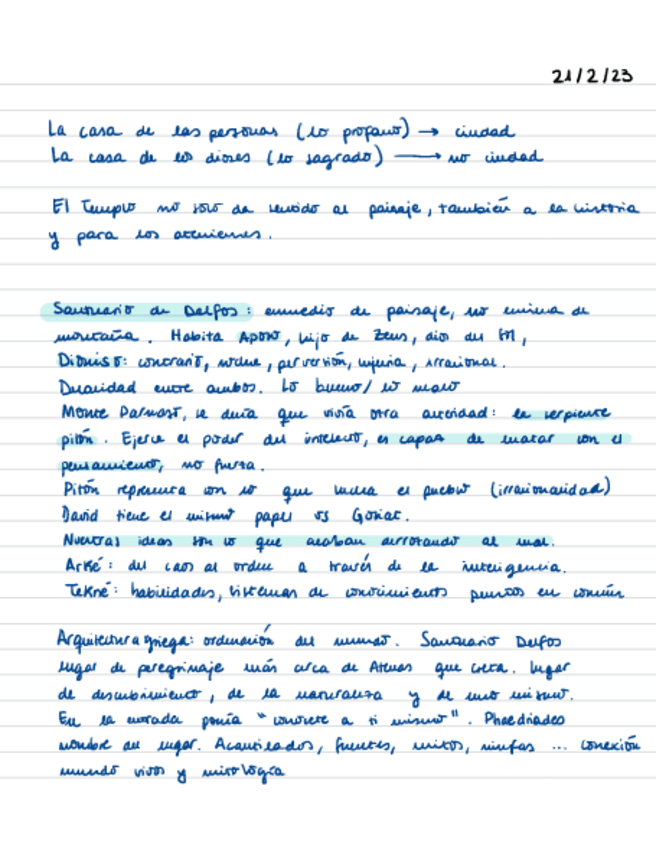 21/2/23
La casa de las personas (lo profano) → ciudad
La casa de los dioses (lo sagrado) → no ciudad
El Templo no solo da sentido al paisaje, también a la historia
y para los atenienses.
Santuario de Delfos: enmedio de paisaje, no encima de
montaña. Habita Apolo, hijo de Zeus, dios del sol,
Dioniso: contrario, noche, perversión, lujuria, irracional.
Dualidad entre ambos. Lo bueno/ lo malo
Monte Parnaso, se decía que vivía otra deidad: la serpiente
pitón. Ejerce el poder del intelecto, es capaz de matar con el
pensamiento, no fuerza.
Pitón representa con lo que lucha el pueblo (irracionalidad)
David tiene el mismo papel vs Goliat.
Nuestras ideas son lo que acaban derrotando al mal.
Arké: del caos al orden a través de la inteligencia.
Tekné: habilidades, sistemas de conocimientos puestos en común
Arquitectura griega: ordenación del mundo. Santuario Delfos
lugar de peregrinaje más cerca de Atenas que Creta. Lugar
de descubrimiento, de la naturaleza y de uno mismo.
En la entrada ponía "conócete a ti mismo". Phaedriades
nombre del lugar. Acantilados, fuentes, mitos, ninfas ... conexión
mundo vivos y mitología